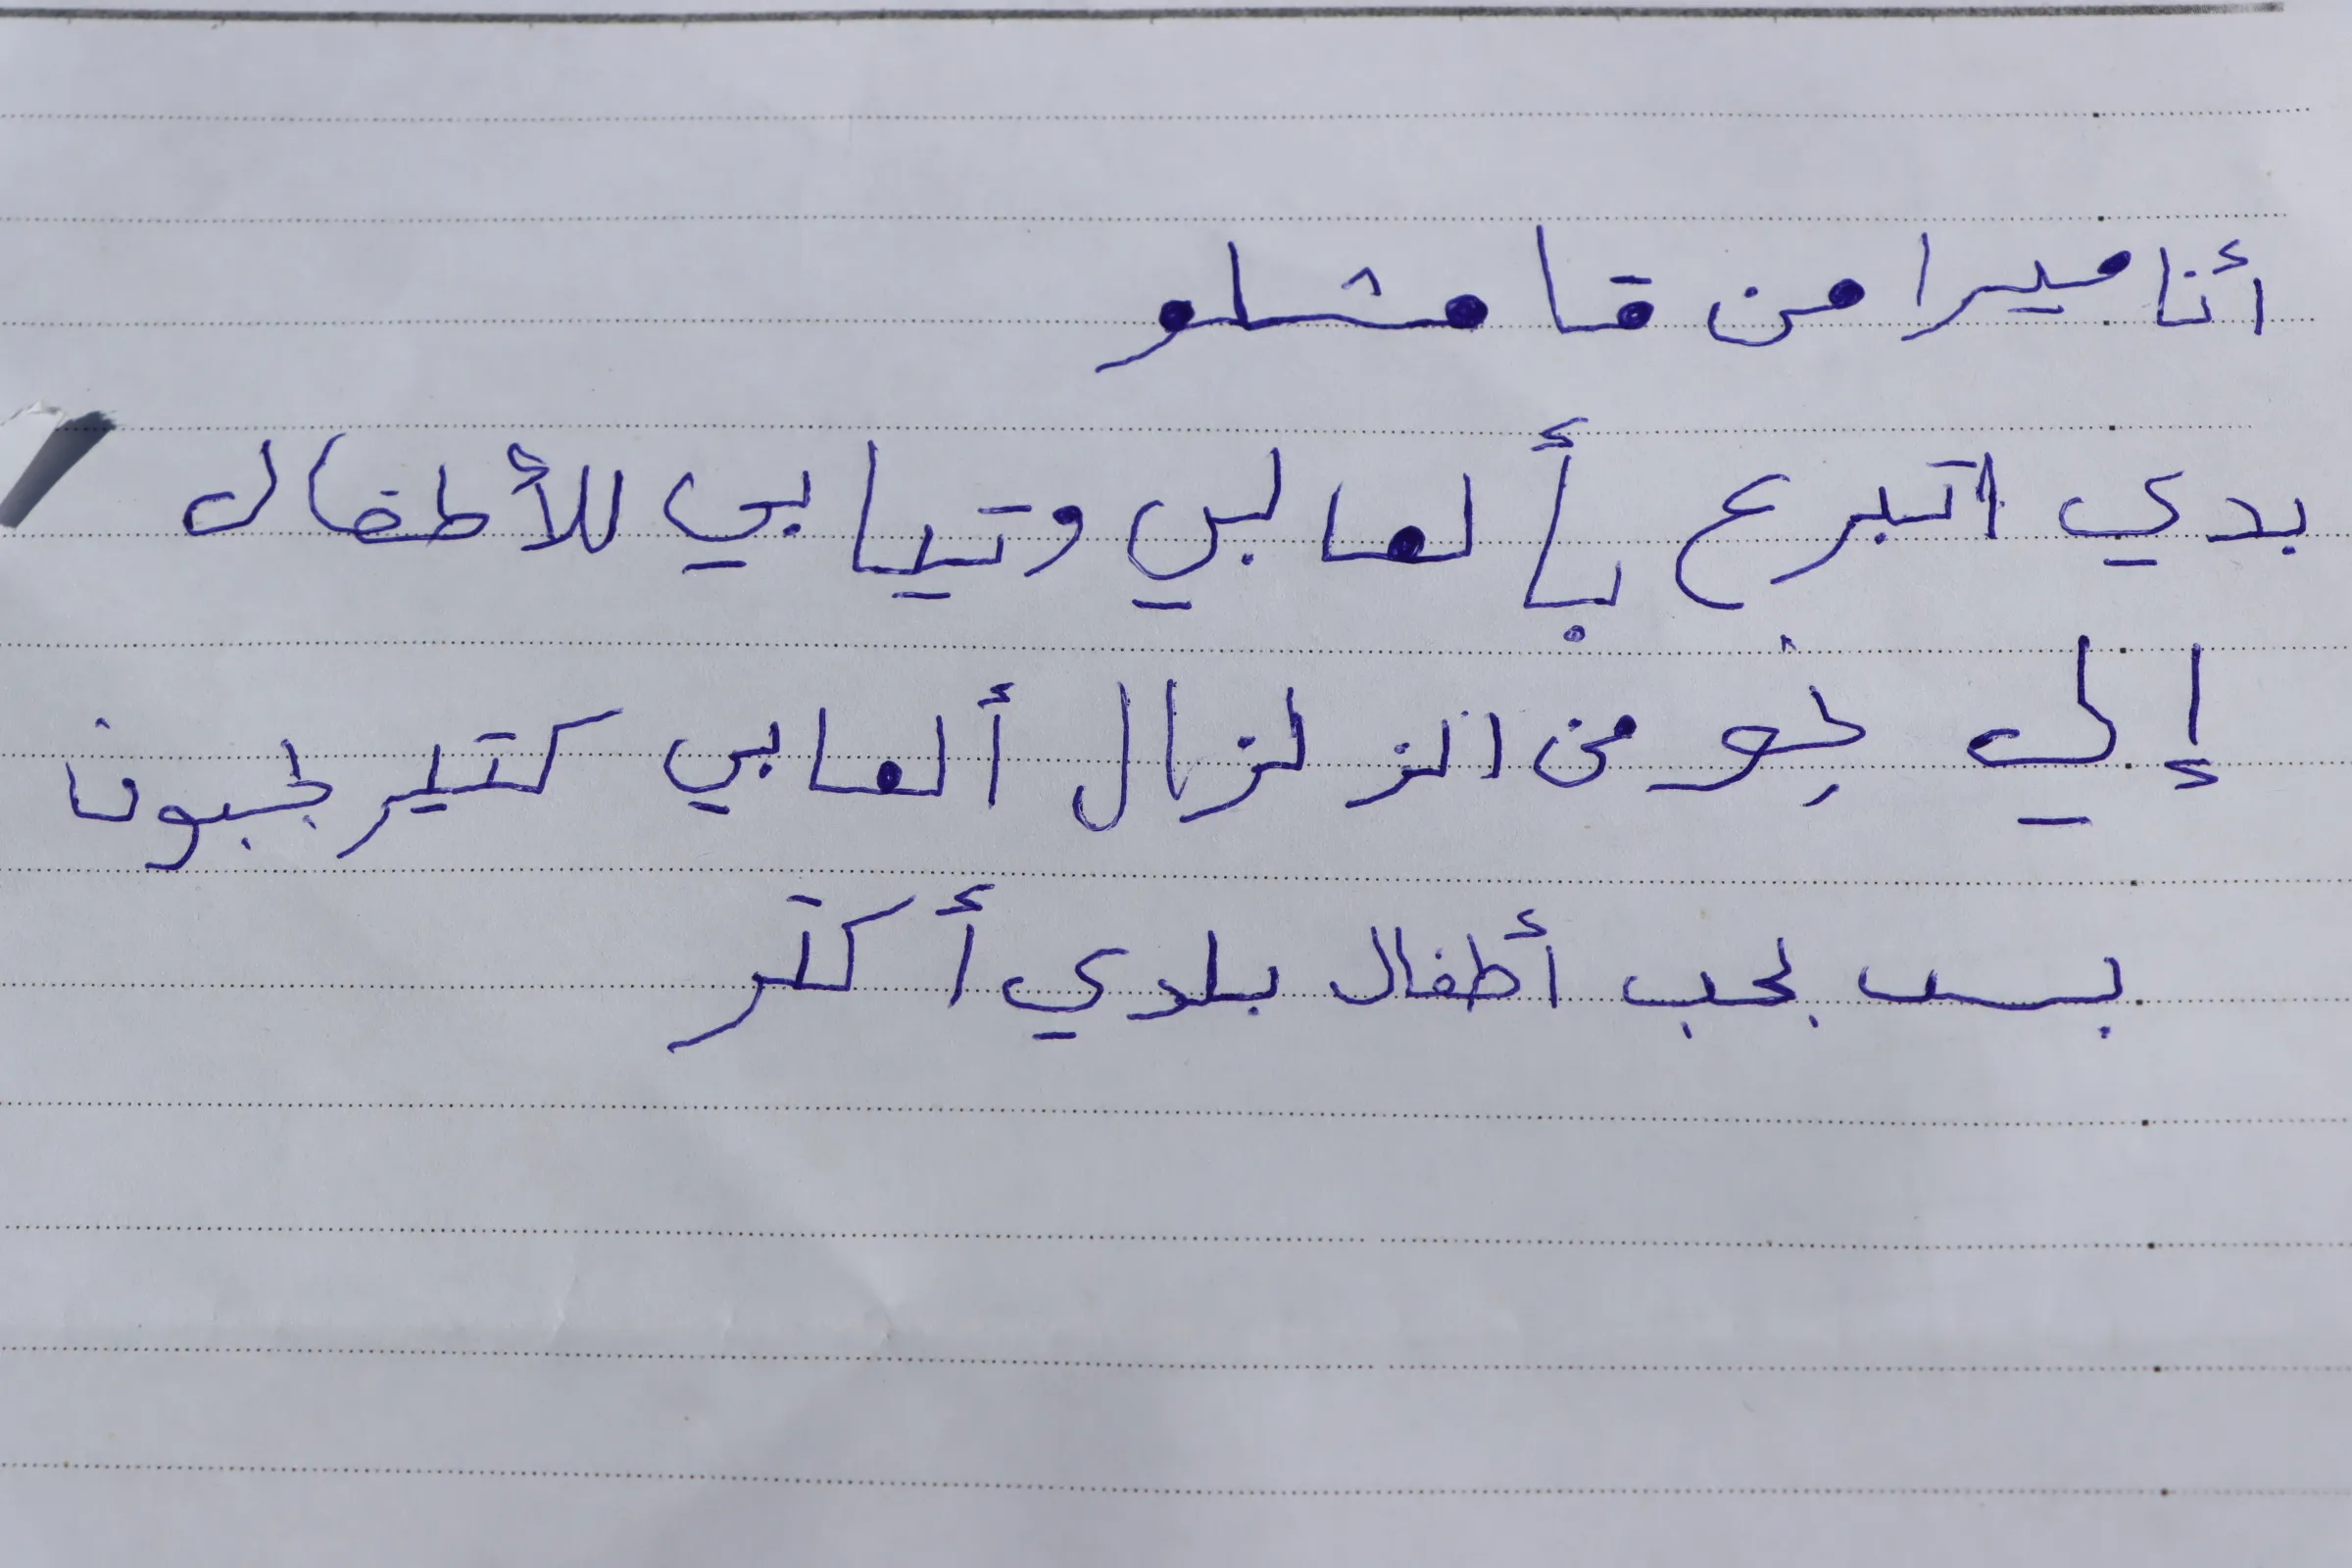 أنا ميرا من قامشلو
بدي اتبرع بألعابي وتيابي للأطفال
إلي نجو من الزلزال ألعابي كتير بحبون
بس بحب أطفال بلدي أكتر